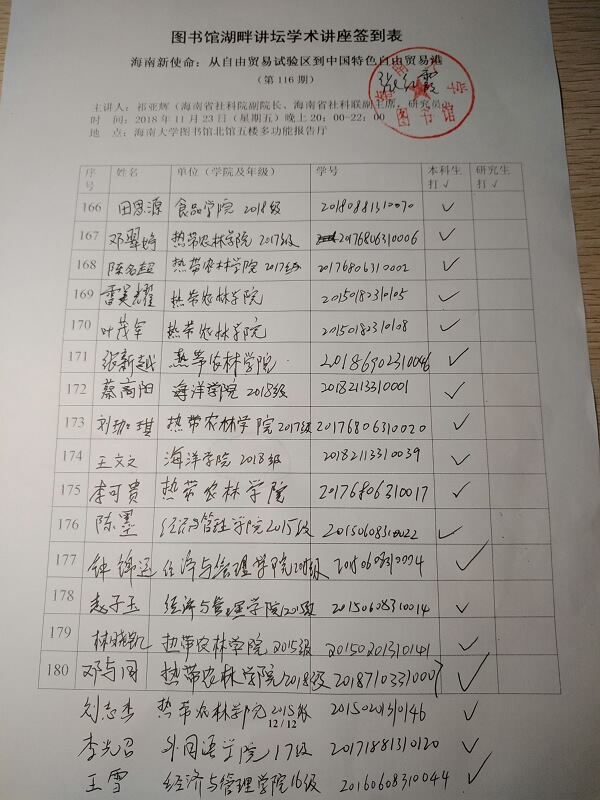 图书馆湖畔讲坛学术讲座签到表
海南新使命:从自由贸易试验区到中国特色自由贸易港
(第 116 期)
主讲人:祁亚辉(海南省社科院副院长、海南省社科联副主席,研究员)
时 间:2018 年 11 月 23 日(星期五)晚上 20:00-22:00
地 点:海南大学图书馆北馆五楼多功能报告厅
图书馆
序号 姓名 单位(学院及年级) 学号 本科生打√ 研究生打√
166 田恩源 食品学院 2018级 20180881310070 √
167 邓翠婷 热带农林学院 2017级 20176806310006 √
168 陈名超 热带农林学院 2017级 20176806310002 √
169 雷昊耀 热带农林学院 20150182310105 √
170 叶茂军 热带农林学院 20150182310108 √
171 张新越 热带农林学院 20186902310046 √
172 蔡高阳 海洋学院 2018级 20182113310001 √
173 刘珈琪 热带农林学院 2017级 20176806310020 √
174 王文文 海洋学院 2018级 20182113310039 √
175 李可贵 热带农林学院 20176806310017 √
176 陈墨 经济与管理学院2015级 20150608310022 √
177 钟锦运 经济与管理学院2015级 √
178 赵子玉 经济与管理学院2015级 20150608310014 √
179 林晓凯 热带农林学院 2015级 20150201310141 √
180 邓与同 热带农林学院2018级 √
刘志杰 热带农林学院2015级 20150201310146 √
12 / 12
李光召 外国语学院 17级 20171881310120 √
王雪 经济与管理学院16级 20160608310044 √